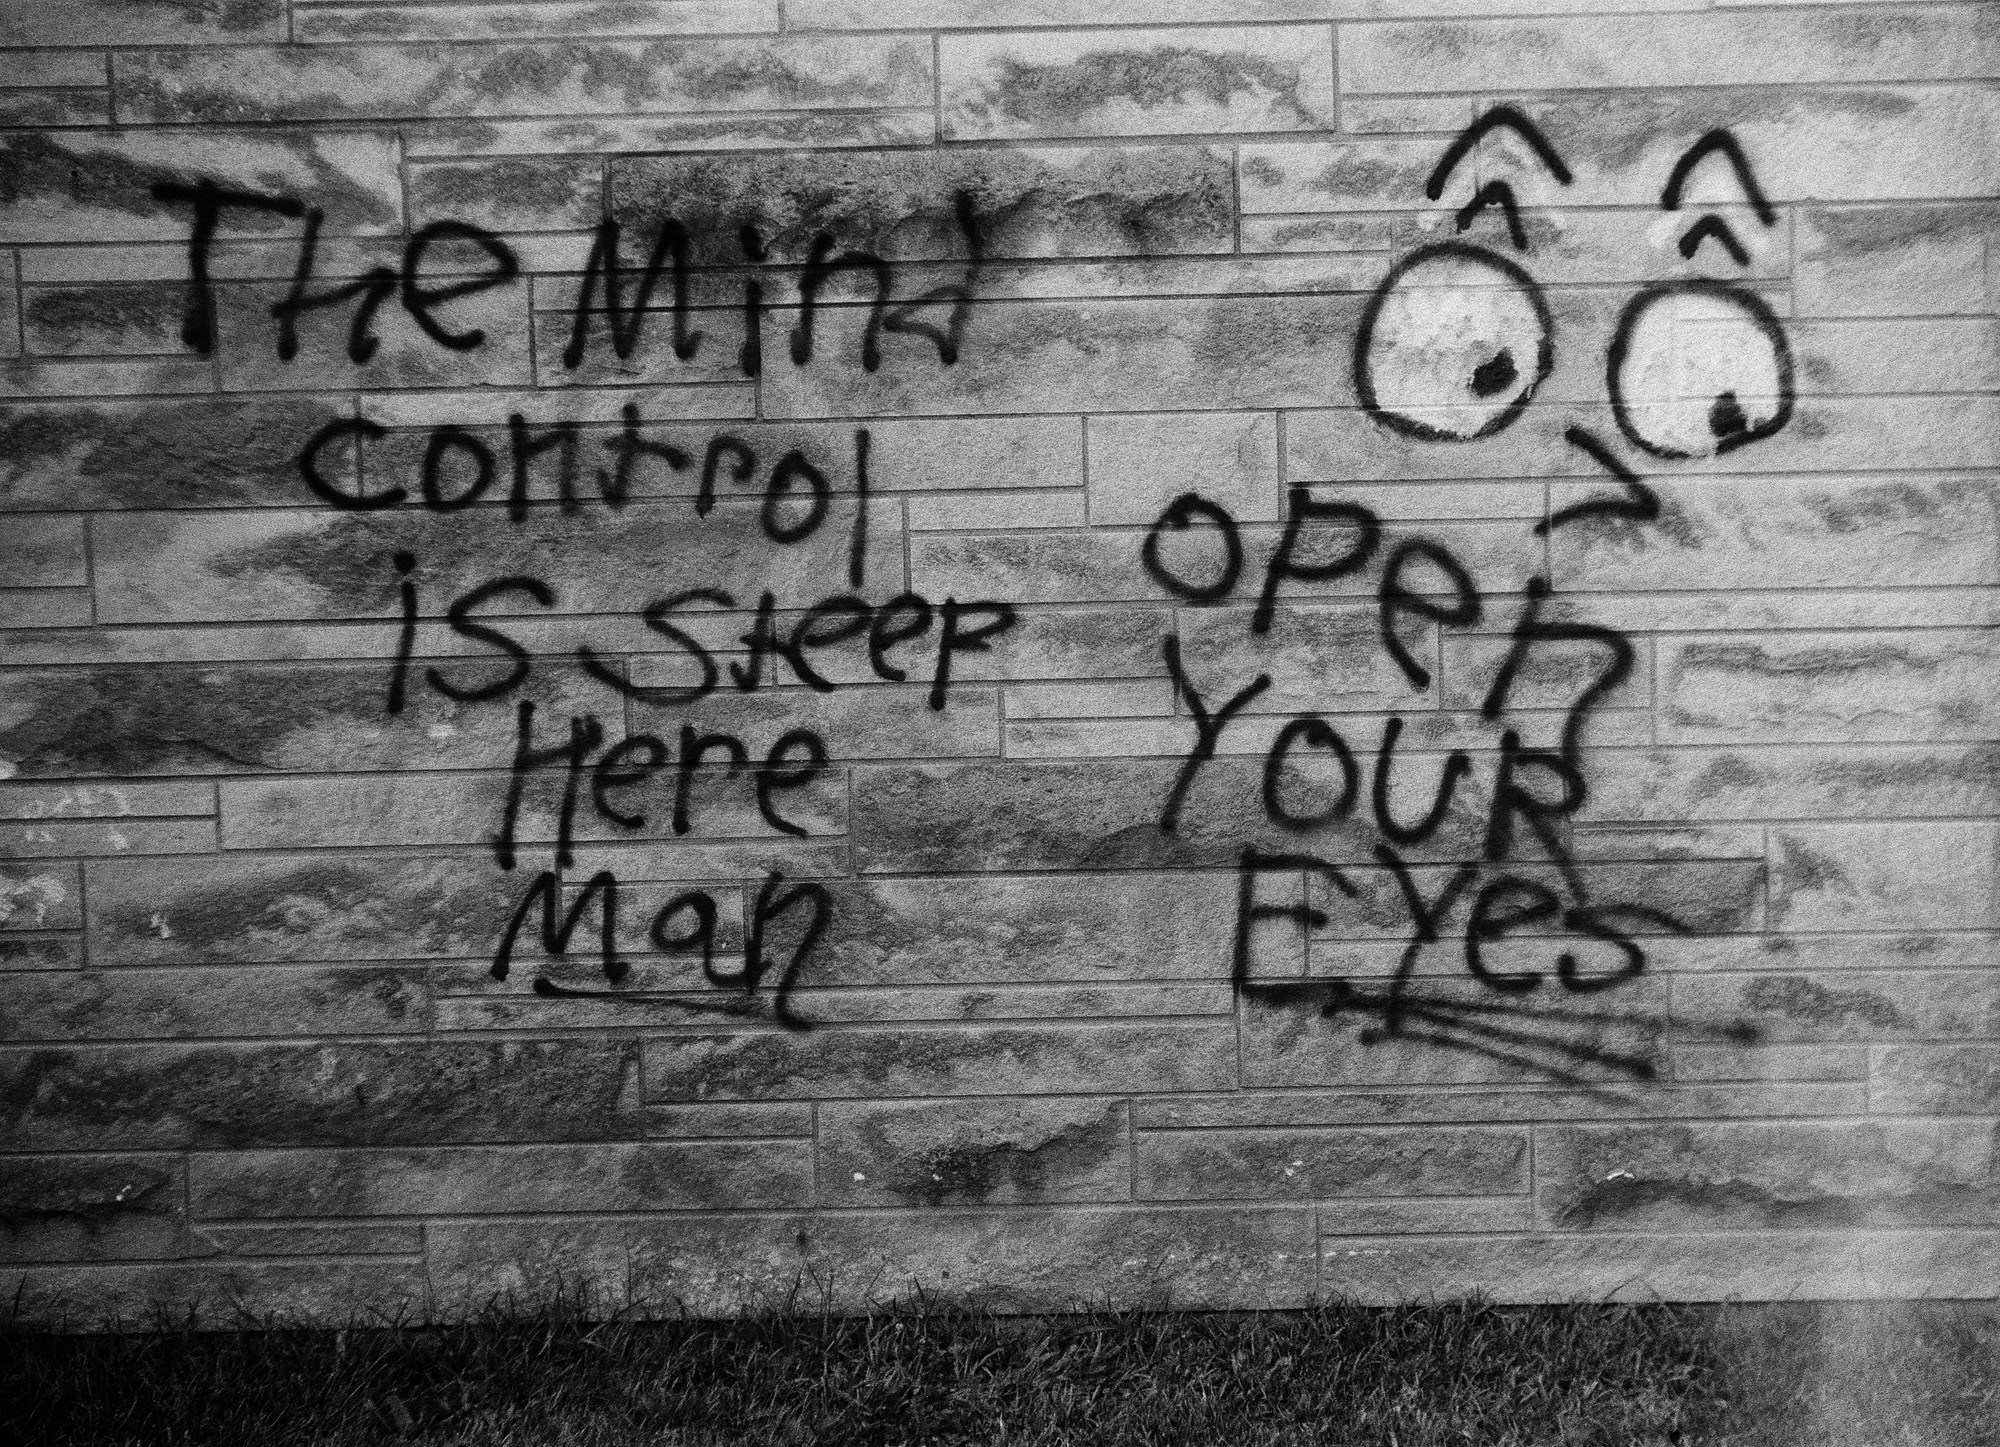 The Mind
control
is steep
Here
Man
open
Your
Eyes